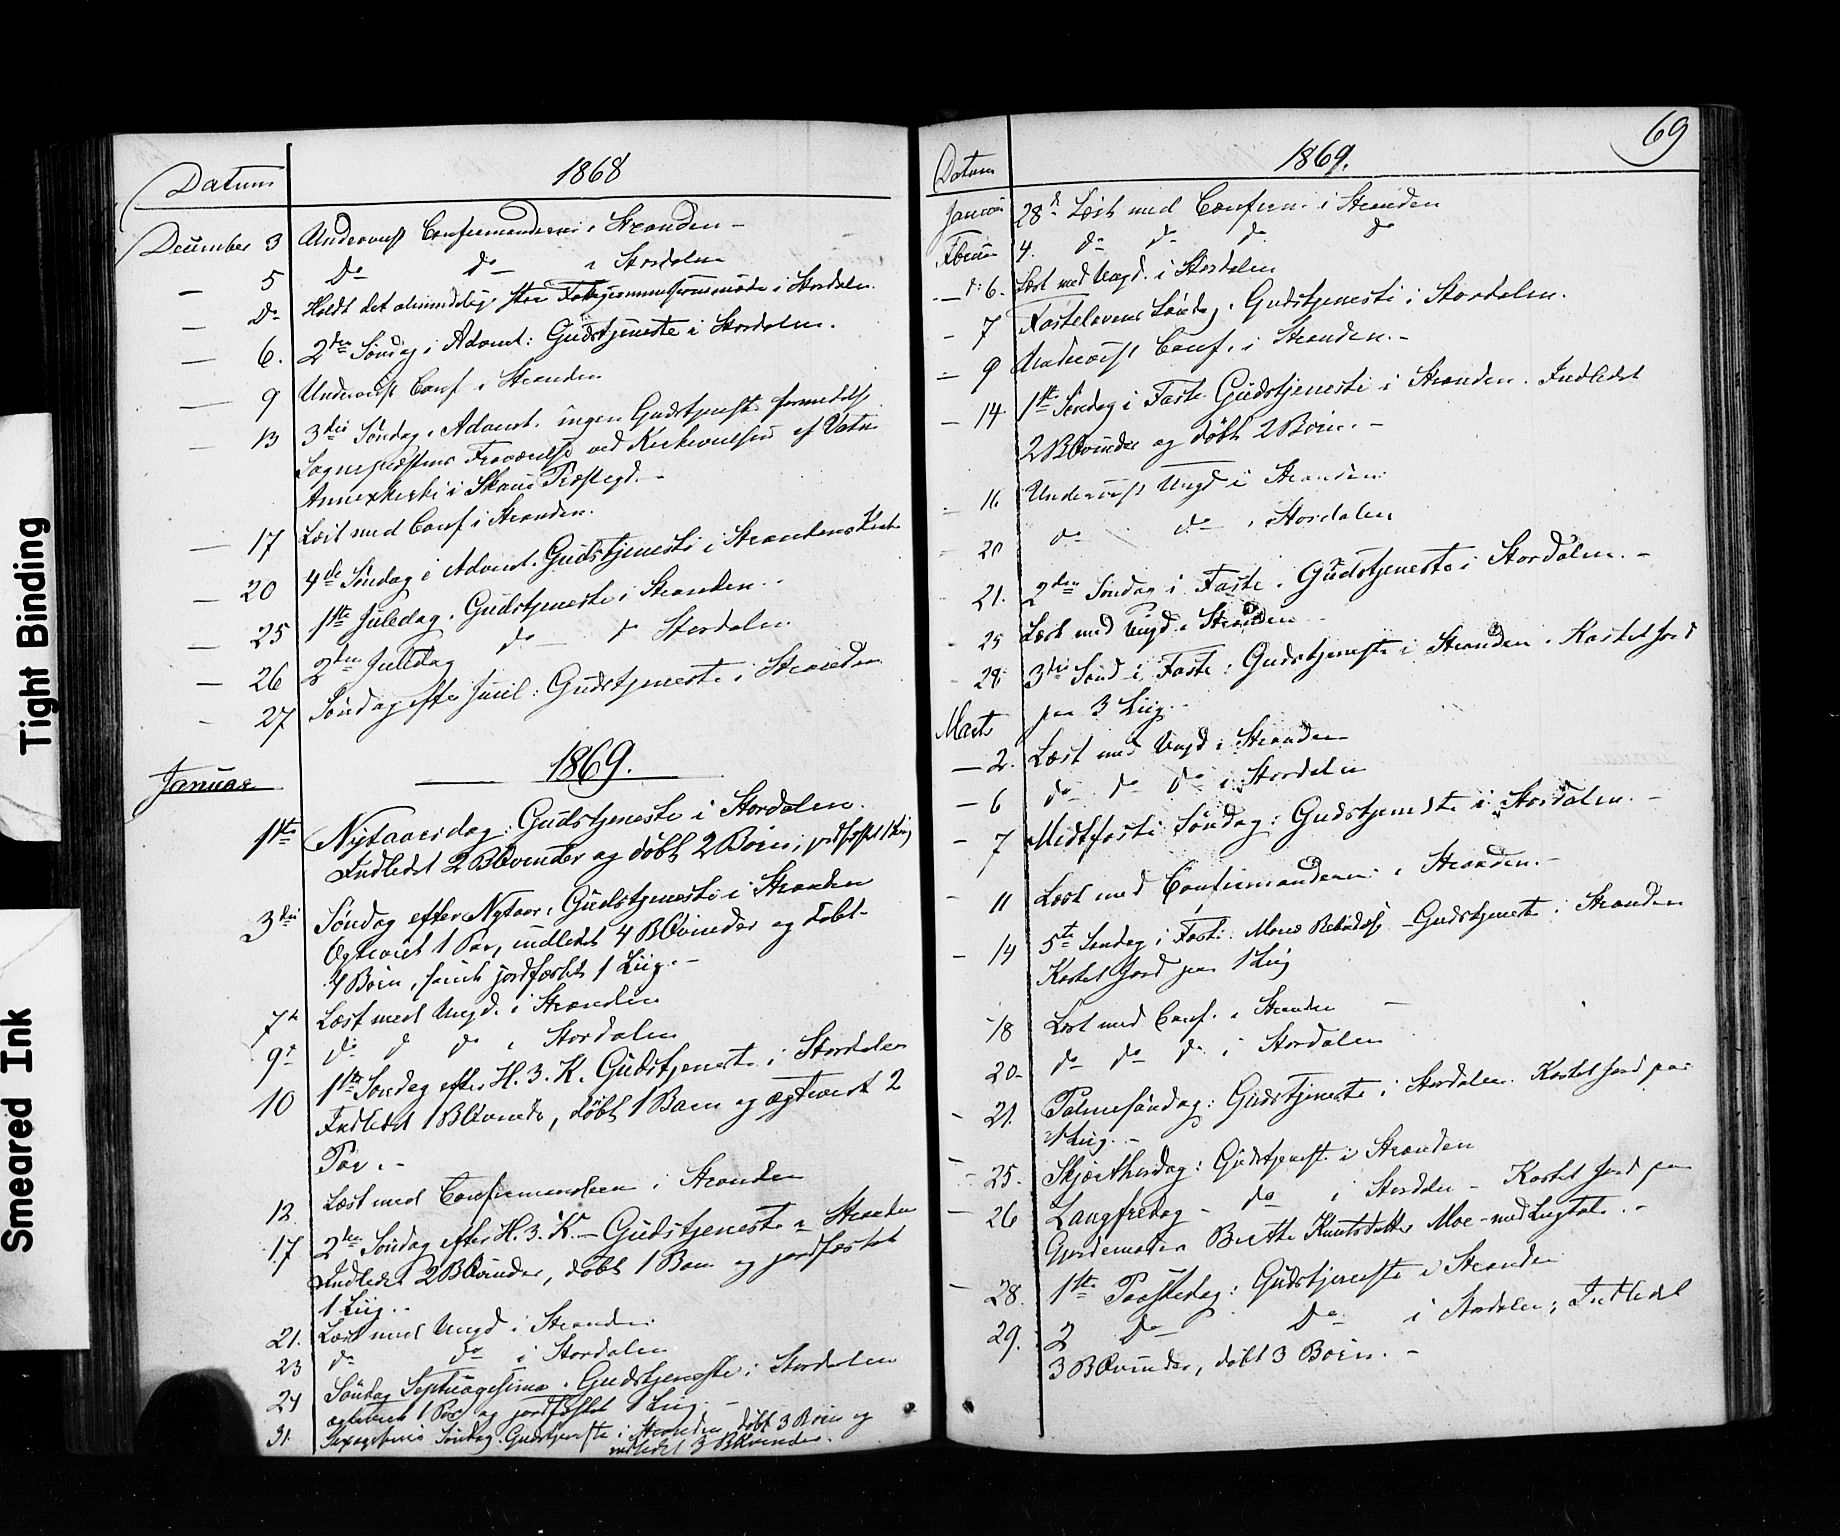 Datum 1868
December 3 Underviist Confirmanderne i Stranden –
– 5 Do Do i Stordalen
– Do Holdt det almindelige store Fattigcommissionsmøde i Stordalen.
– 6. 2den Søndag i Advent: Gudstjeneste i Stordalen.
– 9 Underviist Conf i Stranden
– 13 3die Søndag i Advent. ingen Gudstjeneste formedelst
Sognepræstens Fraværelse ved Kirkevielsen af Vatne
Annexkirke i Skous Præstegd. –
– 17 Læst med Conf i Stranden.
– 20 4de Søndag i Advent. Gudstjeneste i Strandens Kirke
– 25 1ste Juledag. Gudstjeneste i Stranden. -
– 26 2den Juledag do – i Stordalen
- 27 Søndag efter Juul: Gudstjeneste i Stranden
Januar 1869.
1ste Nytaarsdag: Gudstjeneste i Stordalen.
Indledet 2 BQvinder og døbt 2 Børn; jordfæstet 1 Liig
3die Søndag efter Nytaar, Gudstjeneste i Stranden
Ægteviet 1 Par, indledet 4 BQvinder og døbt
4 Børn, samt jordfæstet 1 Liig. –
7de Læst med Ungd. i Stranden
9de do do do i Stordalen
10 1ste Søndag efter H. 3. K. Gudstjeneste i Stordalen
Indledet 1 BQvinde, døbt 1 Barn og ægteviet 2
Par. –
12. Læst med Confirmanderne i Stranden
17. 2den Søndag efter H. 3. K. – Gudstjeneste i Stranden
Indledet 2 BQvinder, døbt 1 Barn og jordfæstet
1 Liig. -
21. Læst med Ungd i Stranden.
23 do do i Stordalen
24 Søndag Septuagesima. Gudstjeneste i Stordalen
ægteviet 1 Par og jordfæstet 1 Liig. –
31. Sexagesima Søndag. Gudstjeneste i Stranden, døbt 3 Børn og
indledet 3 BQvinder.
69
Datum 1869.
Januar 28de Læst med Confirm. i Stranden
Februar 4. do do do do
– d: 6. Læst med Ungd. i Stordalen
- 7 Fastelavens Søndag: Gudstjeneste i Stordalen.
- 9 Underviist Conf. i Stranden. –
- 14 1ste Søndag i Faste Gudstjeneste i Stranden. Indledet
2 BQvinder og døbt 2 Børn. –
- 16. Underviist Ungd i Stranden.
- 20 do do i Stordalen
- 21. 2den Søndag i Faste. Gudstjeneste i Stordalen. –
- 25 Læst med Ungd. i Stranden
- 28. 3die Sønd i Faste: Gudstjeneste i Stranden. Kastet Jord
paa 3 Liig. -
Marts
– 2. Læst med Ungd i Stranden
– 6 do do Do i Stordalen
- 7 Midtfaste Søndag: Gudstjeneste i Stordalen. –
- 11 Læst med Confirmanderne i Stranden. –
- 14 5te Søndag i Faste. Mariæ Bebudelse – Gudstjeneste i Stranden
Kastet Jord paa 1 Liig
- 18 Læst med Conf. i Stranden –
20. do do do i Stordalen
– 21. Palmesøndag: Gudstjeneste i Stordalen. Kastet Jord paa
1 Liig. –
– 25. Skjærthorsdag: Gudstjeneste i Stranden
– 26 Langfredag – do i Stordalen – Kastet Jord paa
Gjordemoder Birthe Knutsdatter Moe – med Liigtale. –
– 28. 1ste Paaskedag: Gudstjeneste i Stranden
29. 2 Do Do i Stordalen; Indledet
3 BQvinder, døbt 3 Børn. –
Tight Binding
Smeared Ink